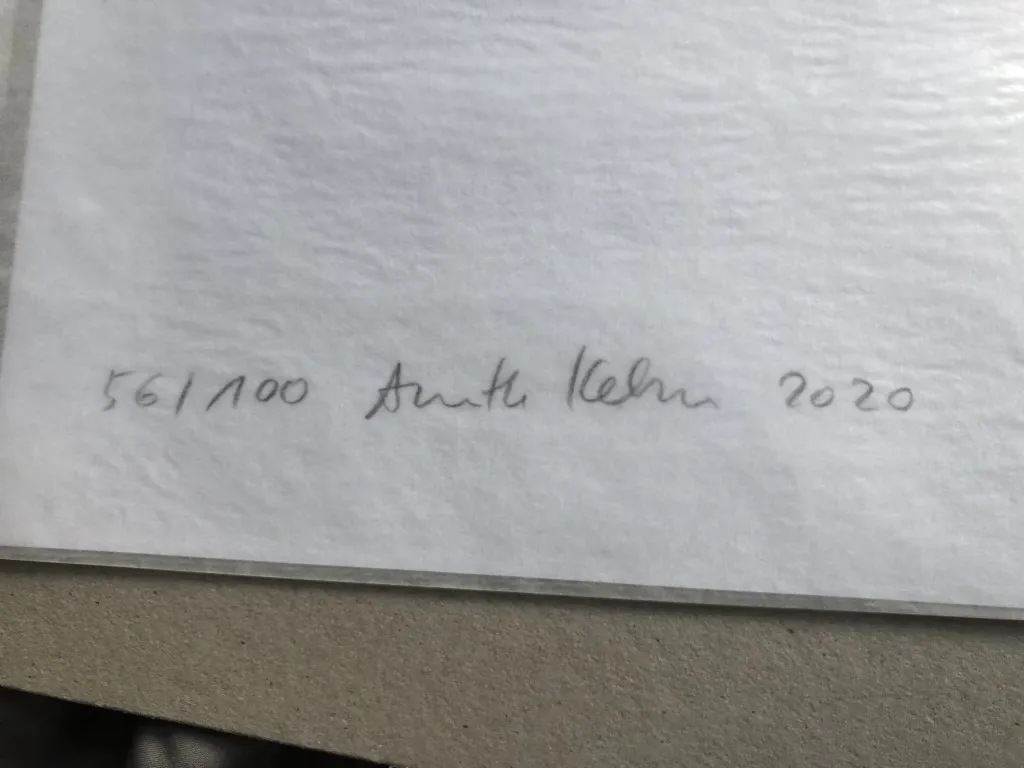 56/100 Annette Kelm 2020